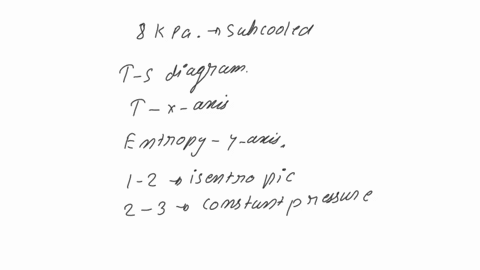 8 kpa. → subcooled
T-s diagram.
T - x - axis
Entropy - y-axis.
1-2 → isentropic
2-3 → constant pressure